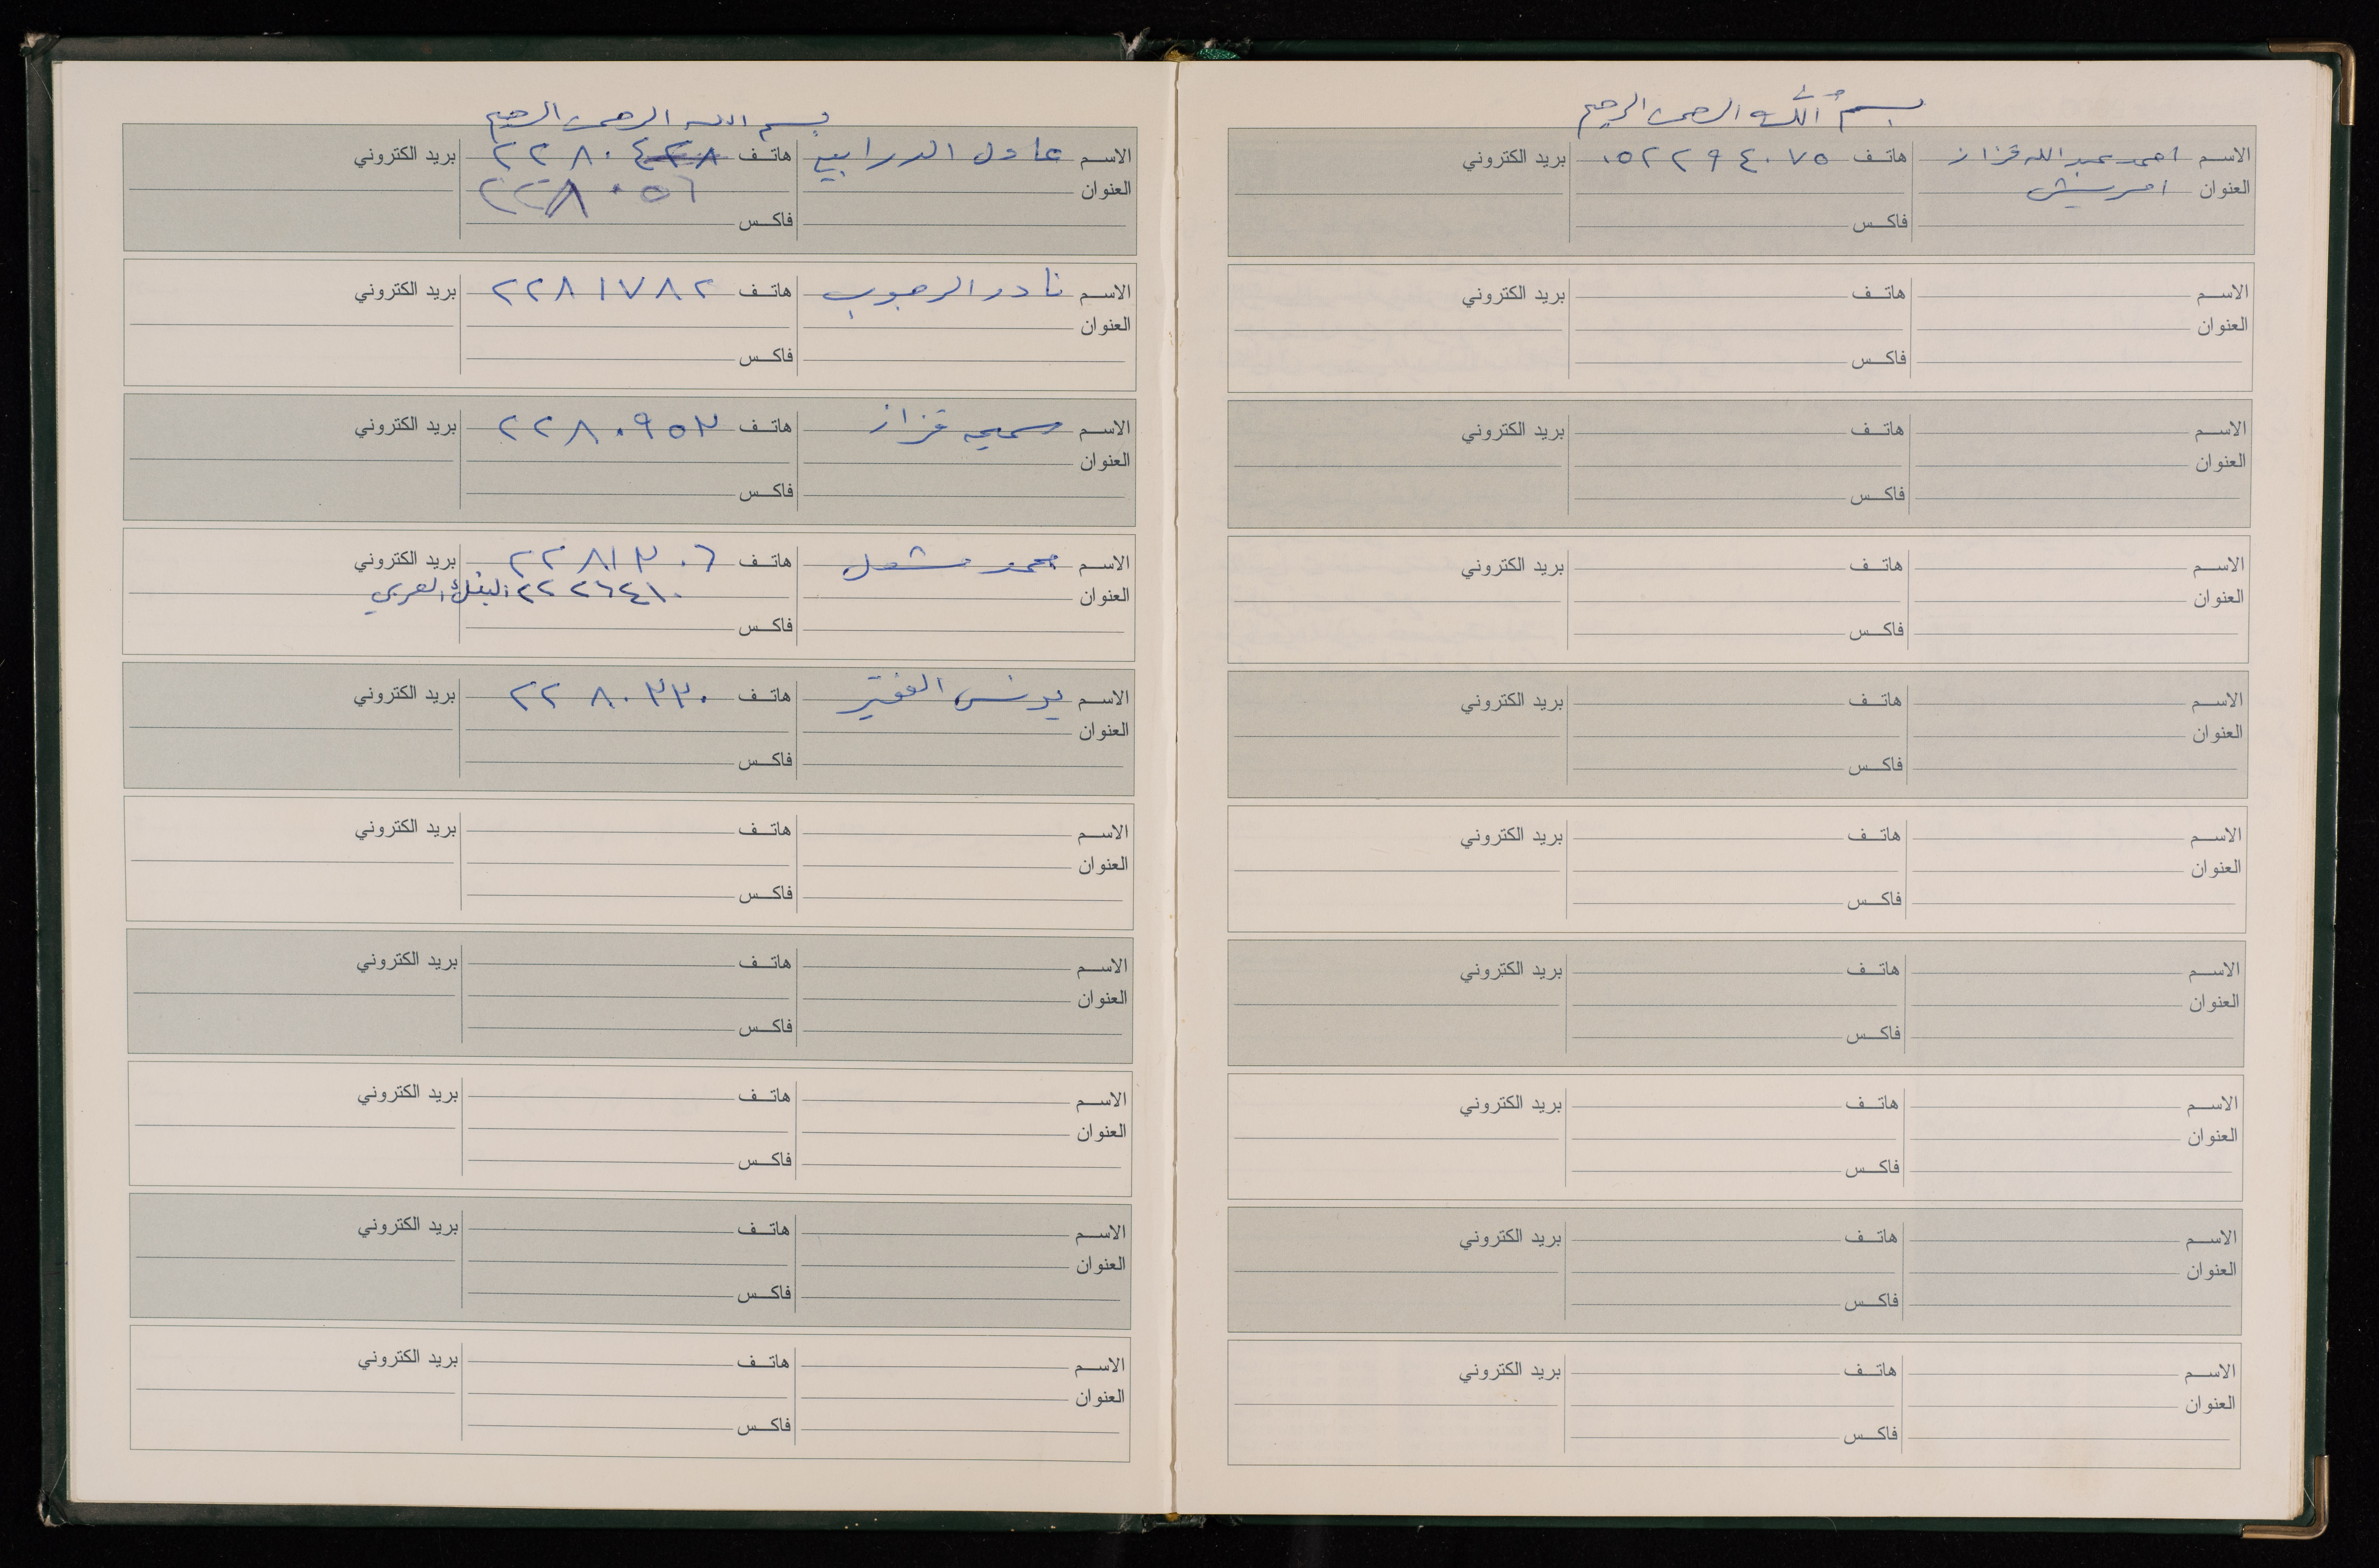 بسم الله الرحمن الرحيم
الاسم احمد عبد الله قزاز هاتف ٠٥٢٢٩٤٠٧٥ بريد الكتروني
العنوان امريش
فاكس
الاسم هاتف بريد الكتروني
العنوان
فاكس
الاسم هاتف بريد الكتروني
العنوان
فاكس
الاسم هاتف بريد الكتروني
العنوان
فاكس
الاسم هاتف بريد الكتروني
العنوان
فاكس
الاسم هاتف بريد الكتروني
العنوان
فاكس
الاسم هاتف بريد الكتروني
العنوان
فاكس
الاسم هاتف بريد الكتروني
العنوان
فاكس
الاسم هاتف بريد الكتروني
العنوان
فاكس
الاسم هاتف بريد الكتروني
العنوان
فاكس
بسم الله الرحمن الرحيم
الاسم عادل الدرابيع هاتف بريد الكتروني
العنوان ٢٢٨٠٥٦
فاكس
الاسم نادر الرجوب هاتف ٢٢٨١٧٨٢ بريد الكتروني
العنوان
فاكس
الاسم سميحه قزاز هاتف ٢٢٨٠٩٥٣ بريد الكتروني
العنوان
فاكس
الاسم محمد مشعل هاتف ٢٢٨١٣٠٦ بريد الكتروني
العنوان ٢٢٢٦٤١٠ البنك العربي
فاكس
الاسم يونس الفقير هاتف ٢٢٨٠٣٣٠ بريد الكتروني
العنوان
فاكس
الاسم هاتف بريد الكتروني
العنوان
فاكس
الاسم هاتف بريد الكتروني
العنوان
فاكس
الاسم هاتف بريد الكتروني
العنوان
فاكس
الاسم هاتف بريد الكتروني
العنوان
فاكس
الاسم هاتف بريد الكتروني
العنوان
فاكس